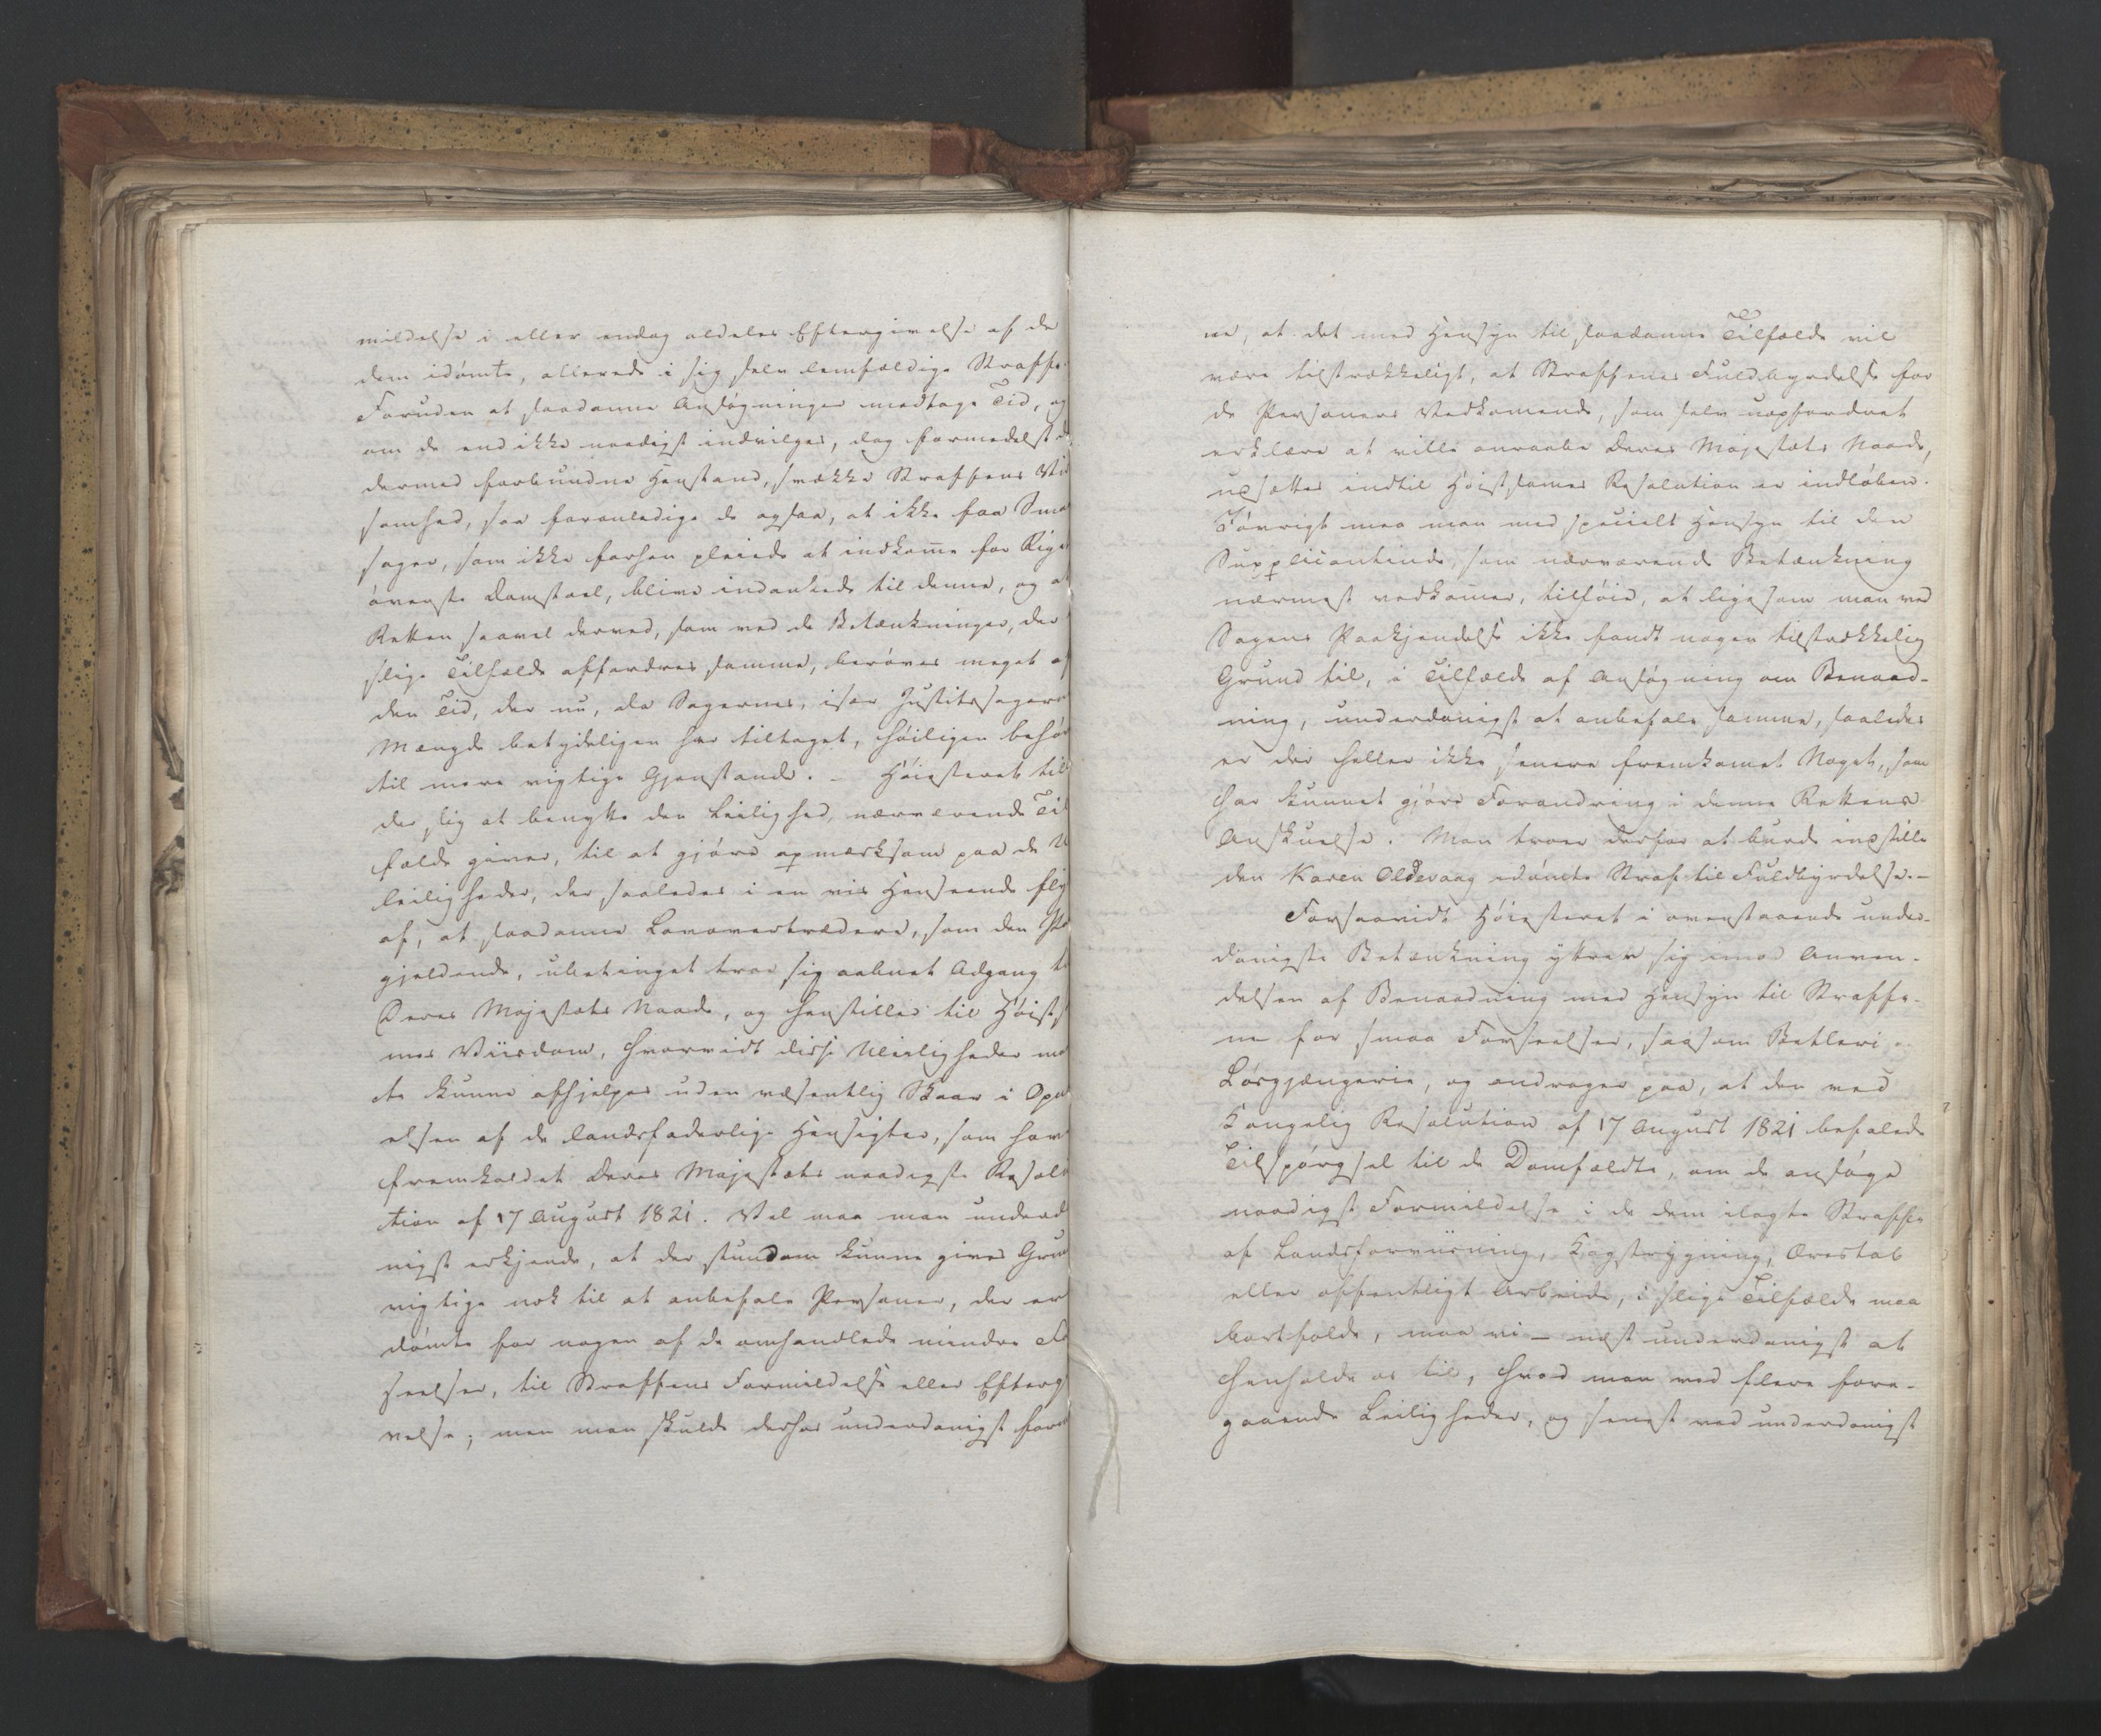 mildelse i eller endog aldeles Eftergivelse af de
dem idømte, allerede i sig selv lemfældige Straffe.
Foruden at saadanne Ansøgninger medtage Tid, og
om de end ikke naadigst indvilges, dog formedelst d
dermed forbundne Henstand, svække Straffens Vir
somhed, saa foranledige de ogsaa, at ikke faa Smaa
sager, som ikke forhen pleiede at indkomme for Rige
øverste Domstoel, blive indankede til denne, og at
Retten saavel derved, som ved de Betænkninger, der
slige Tilfælde affordres samme, berøves meget af
den Tid, der nu, da Sagernes, især Justitssagern
Mængde betydeligen har tiltaget, høiligen behøv
til mere vigtige Gjenstande. – Høiesteret till
der sig at benytte den Leilighed, nærværende Til
fælde giver, til at gjøre opmærksom paa de U
leiligheder, der saaledes i en vis Henseende fly
af, at saadanne Lovovertrædere, som den
gjeldende, ubetinget troe sig aabnet Adgang til
Deres Majestæts Naade, og henstiller til Høists
mes Viisdom, hvorvidt disse Uleiligheder maa
te kunne afhjelpes uden væsentlig Skaar i Opn
elsen af de landsfaderlige Hensigter, som have
fremkaldet Deres Majestæts naadigste Resolu
tion af 17 August 1821. Vel maa man underd
nigst erkjende, at der stundom kunne gives Grun
vigtige nok til at anbefale Personer, der er
dømte for nogen af de omhandlede mindre F
seelser, til Straffens Formildelse eller Efterg
velse; men man skulde derhos underdanigst form
ne, at det med Hensyn til saadanne Tilfælde vil
være tilstrækkeligt, at Straffenes Fuldbyrdelse for
de Personers Vedkommende, som selv uopfordret
erklære at ville anraabe Deres Majestæts Naade,
udsættes indtil Høistsammes Resolution er indløben.
Iøvrigt maa man med specielt Hensyn til den
Supplicantinde, som nærværende Betænkning
nærmest vedkommer, tilføie, at ligesom man ved
Sagens Paakjendelse ikke fandt nogen tilstrækkelig
Grund til, i Tilfælde af Ansøgning om Benaad-
ning, underdanigst at anbefale samme, saaledes
er der heller ikke senere fremkommet Noget, som
har kunnet gjøre Forandring i denne Rettens
Anskuelse. Man troer derfor at burde indstille
den Karen Oldevaag idømte Straf til Fuldbyrdelse. –
Forsaavidt Høiesteret i ovenstaaende under-
danigste Betænkning yttrer sig imod Anven-
delsen af Benaadning med Hensyn til Straffe-
ne for smaa Forseelser, saasom Betleri og
Løsgjængerie, og andrager paa, at den ved
Kongelig Resolution af 17 August 1821 befalede
Tilspørgsel til de Domfældte, om de ansøge
naadigst Formildelse i de dem ilagte Straffe
af Landsforviisning, Kagstrygning, Ærestab
eller offentligt Arbeide, i slige Tilfælde maa
bortfalde, maa vi – næst underdanigst at
henholde os til, hvad man ved flere fore-
gaaende Leiligheder, og senest ved underdanigst